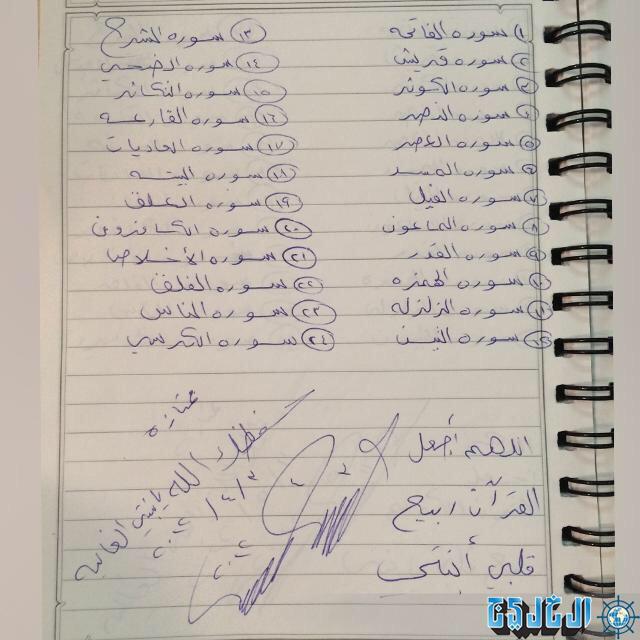 ١ سورة الفاتحه
٢ سوره قريش
٣ سورة الكوثر
٤ سوره النصر
٥ سوره العصر
٦ سوره المسد
٧ سورة الفيل
٨ سوره الماعون
٩ سوره القدر
١٠ سوره الهمزه
١١ سوره الزلزله
١٢ سوره التين
١٣ سوره الشرح
١٤ سوره الضحى
١٥ سوره التكاثر
١٦ سوره القارعه
١٧ سوره العاديات
١٨ سوره البينه
١٩ سوره العلق
٢٠ سوره الكافرون
٢١ سوره الأخلاص
٢٢ سوره الفلق
٢٣ سوره الناس
٢٤ سوره الكرسي
اللهم أجعل
القرآن ربيع
قلبي أبنتى
ممتازه
حفظك الله يا بنيتي الغاليه